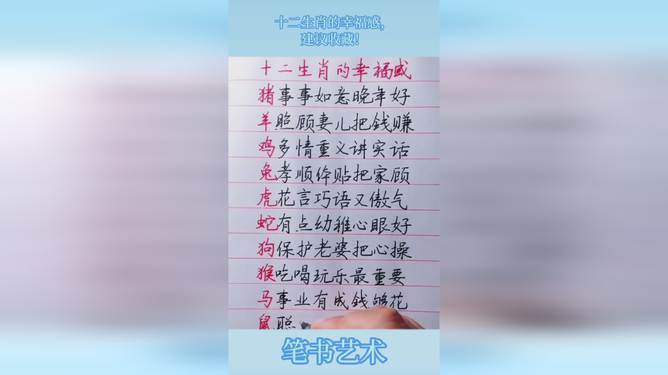 十二生肖的幸福感,
建议收藏!
十二生肖的幸福感
猪事事如意晚年好
羊照顾妻儿把钱赚
鸡多情重义讲实话
兔孝顺体贴把家顾
虎花言巧语又傲气
蛇有点幼稚心眼好
狗保护老婆把心操
猴吃喝玩乐最重要
马事业有成钱够花
鼠聪
笔书艺术